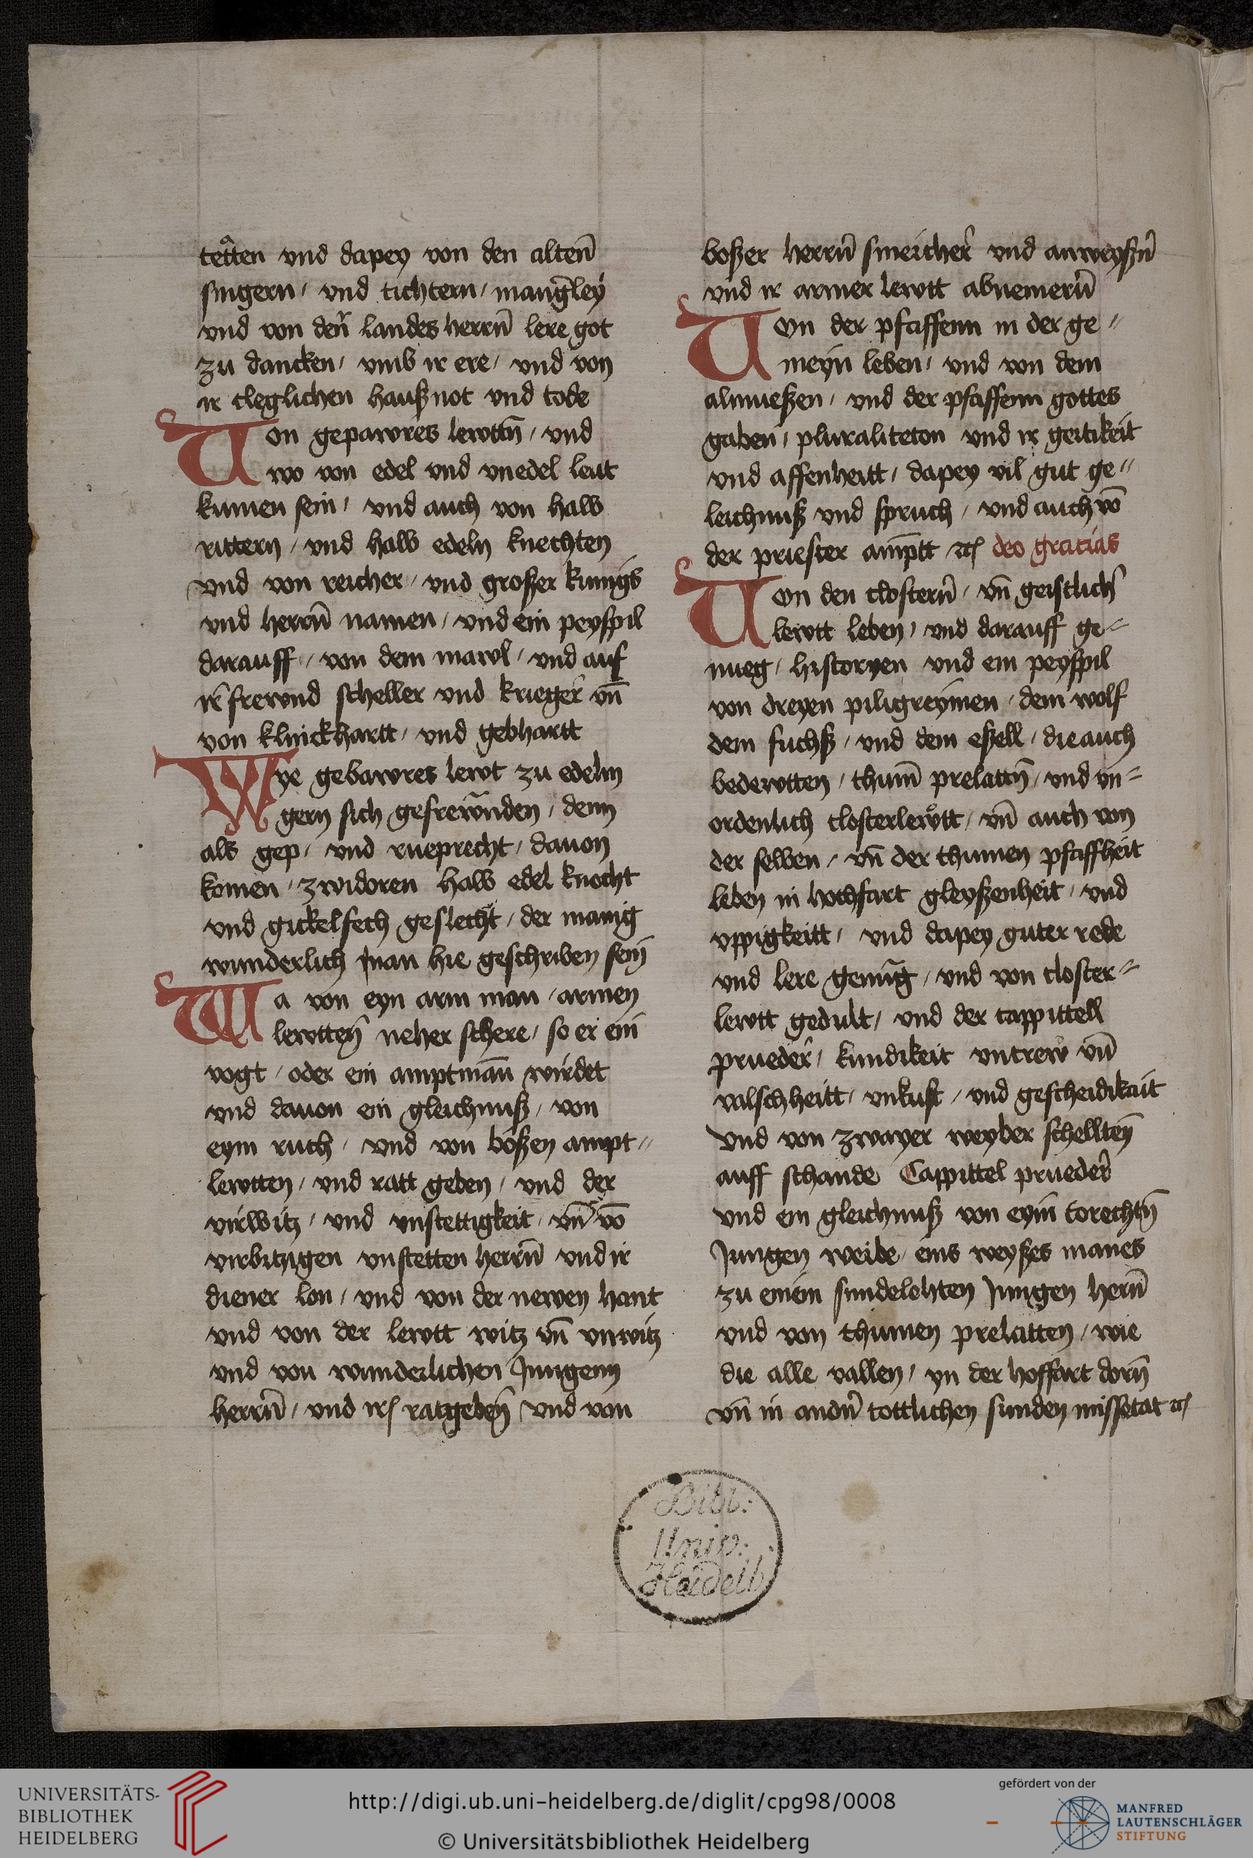 tetten vnd dapey von den alten̄
singern / vnd tichtern / manḡley
vnd von den̄ landes herrn̄ lere got
zu dancken / vmb ir ere / vnd von
ir cleglichen haußnot vnd tode
Von gepawres lewttn̄ / vnd
wo von edel vnd vnedel leut
kumen sein / vnd auch von halb
rittern / vnd halb edeln knechten
vnd von reicher / vnd großer kunigs
vnd herrn̄ namen / vnd ein peyspil
darauff / von dem mawl / vnd auf
ir frewnd scheller vnd krieger vn̄
von klinckhartt / vnd gebhartt
Wye gebawres lewt zu edeln
gern sich gefrewnden / denn
als gep / vnd rueprecht / dauon
komen / zwidoren halb edel knecht
vnd gickelfech geslecht / der manig
wunderlich man hie geschriben sein
Wa von eyn arm man / armen
lewtten neher schere / so er ein
vogt / oder ein amptman̄ wirdet
vnd dauon ein gleichnuß / von
eym ruch / vnd von bößen ampt〃
lewtten / vnd ratt geben / vnd der
virwitz / vnd vnstettigkeit / vn̄ vō
virbitzigen vnstetten herrn̄ vnd ir
diener lon / vnd von der newen hant
vnd von der lewtt witz vn̄ vnwitz
vnd von wunderlichen Jungenn
herrn̄ / vnd irs ratgeben̄ vnd von
boßer herrn̄ smeicher vnd anweyßn̄
vnd ir armer lewtt abnemern̄
Von der pfaffenn in der ge〃
meyn leben / vnd von dem
almueßen / vnd der pfaffenn gottes
gaben / pluraliteton vnd ir geitikeit
vnd affenheitt / dapey vil gut ge〃
leichnuß vnd spruch / vnd auch vō
der priester amptt ꝛc deo gracias
Von den clostern̄ / vn̄ geistlich
lewtt leben / vnd darauff ge〃
nueg / historyen vnd ein peyspil
von dreyen piligreymen / dem wolf
dem fuchß / vnd dem eßell / die auch
bedewtten / thum̄ prelattn̄ / vnd vn〃
ordenlich closterlewtt / vn̄ auch von
der selben / vn̄ der thumen pfaffheit
leben in hochfart gleyßenheit / vnd
vppigkeitt / vnd dapey guter rede
vnd lere genug / vnd von closter〃
lewtt gedult / vnd der cappittell
prueder / kundikeit vntrew vn̄
valschheitt / vnkust / vnd gescheidikait
vnd von zwayer weyber schellten̄
auff schande Cappittel prueder
vnd ein gleichnuß von eym torechtn̄
Jungen weibe / eins weyßes manes
zu einem sundelohten Jungen hern̄
vnd von thumen prelatten / wie
die alle vallen / yn der hoffart dorn̄
vn̄ in andn̄ tottlichen sunden missetat ꝛc
Bibl:
Univ:
Heidelb
UNIVERSITÄTS-
BIBLIOTHEK
HEIDELBERG
http://digi.ub.uni-heidelberg.de/diglit/cpg98/0008
© Universitätsbibliothek Heidelberg
gefördert von der
MANFRED
LAUTENSCHLÄGER
STIFTUNG